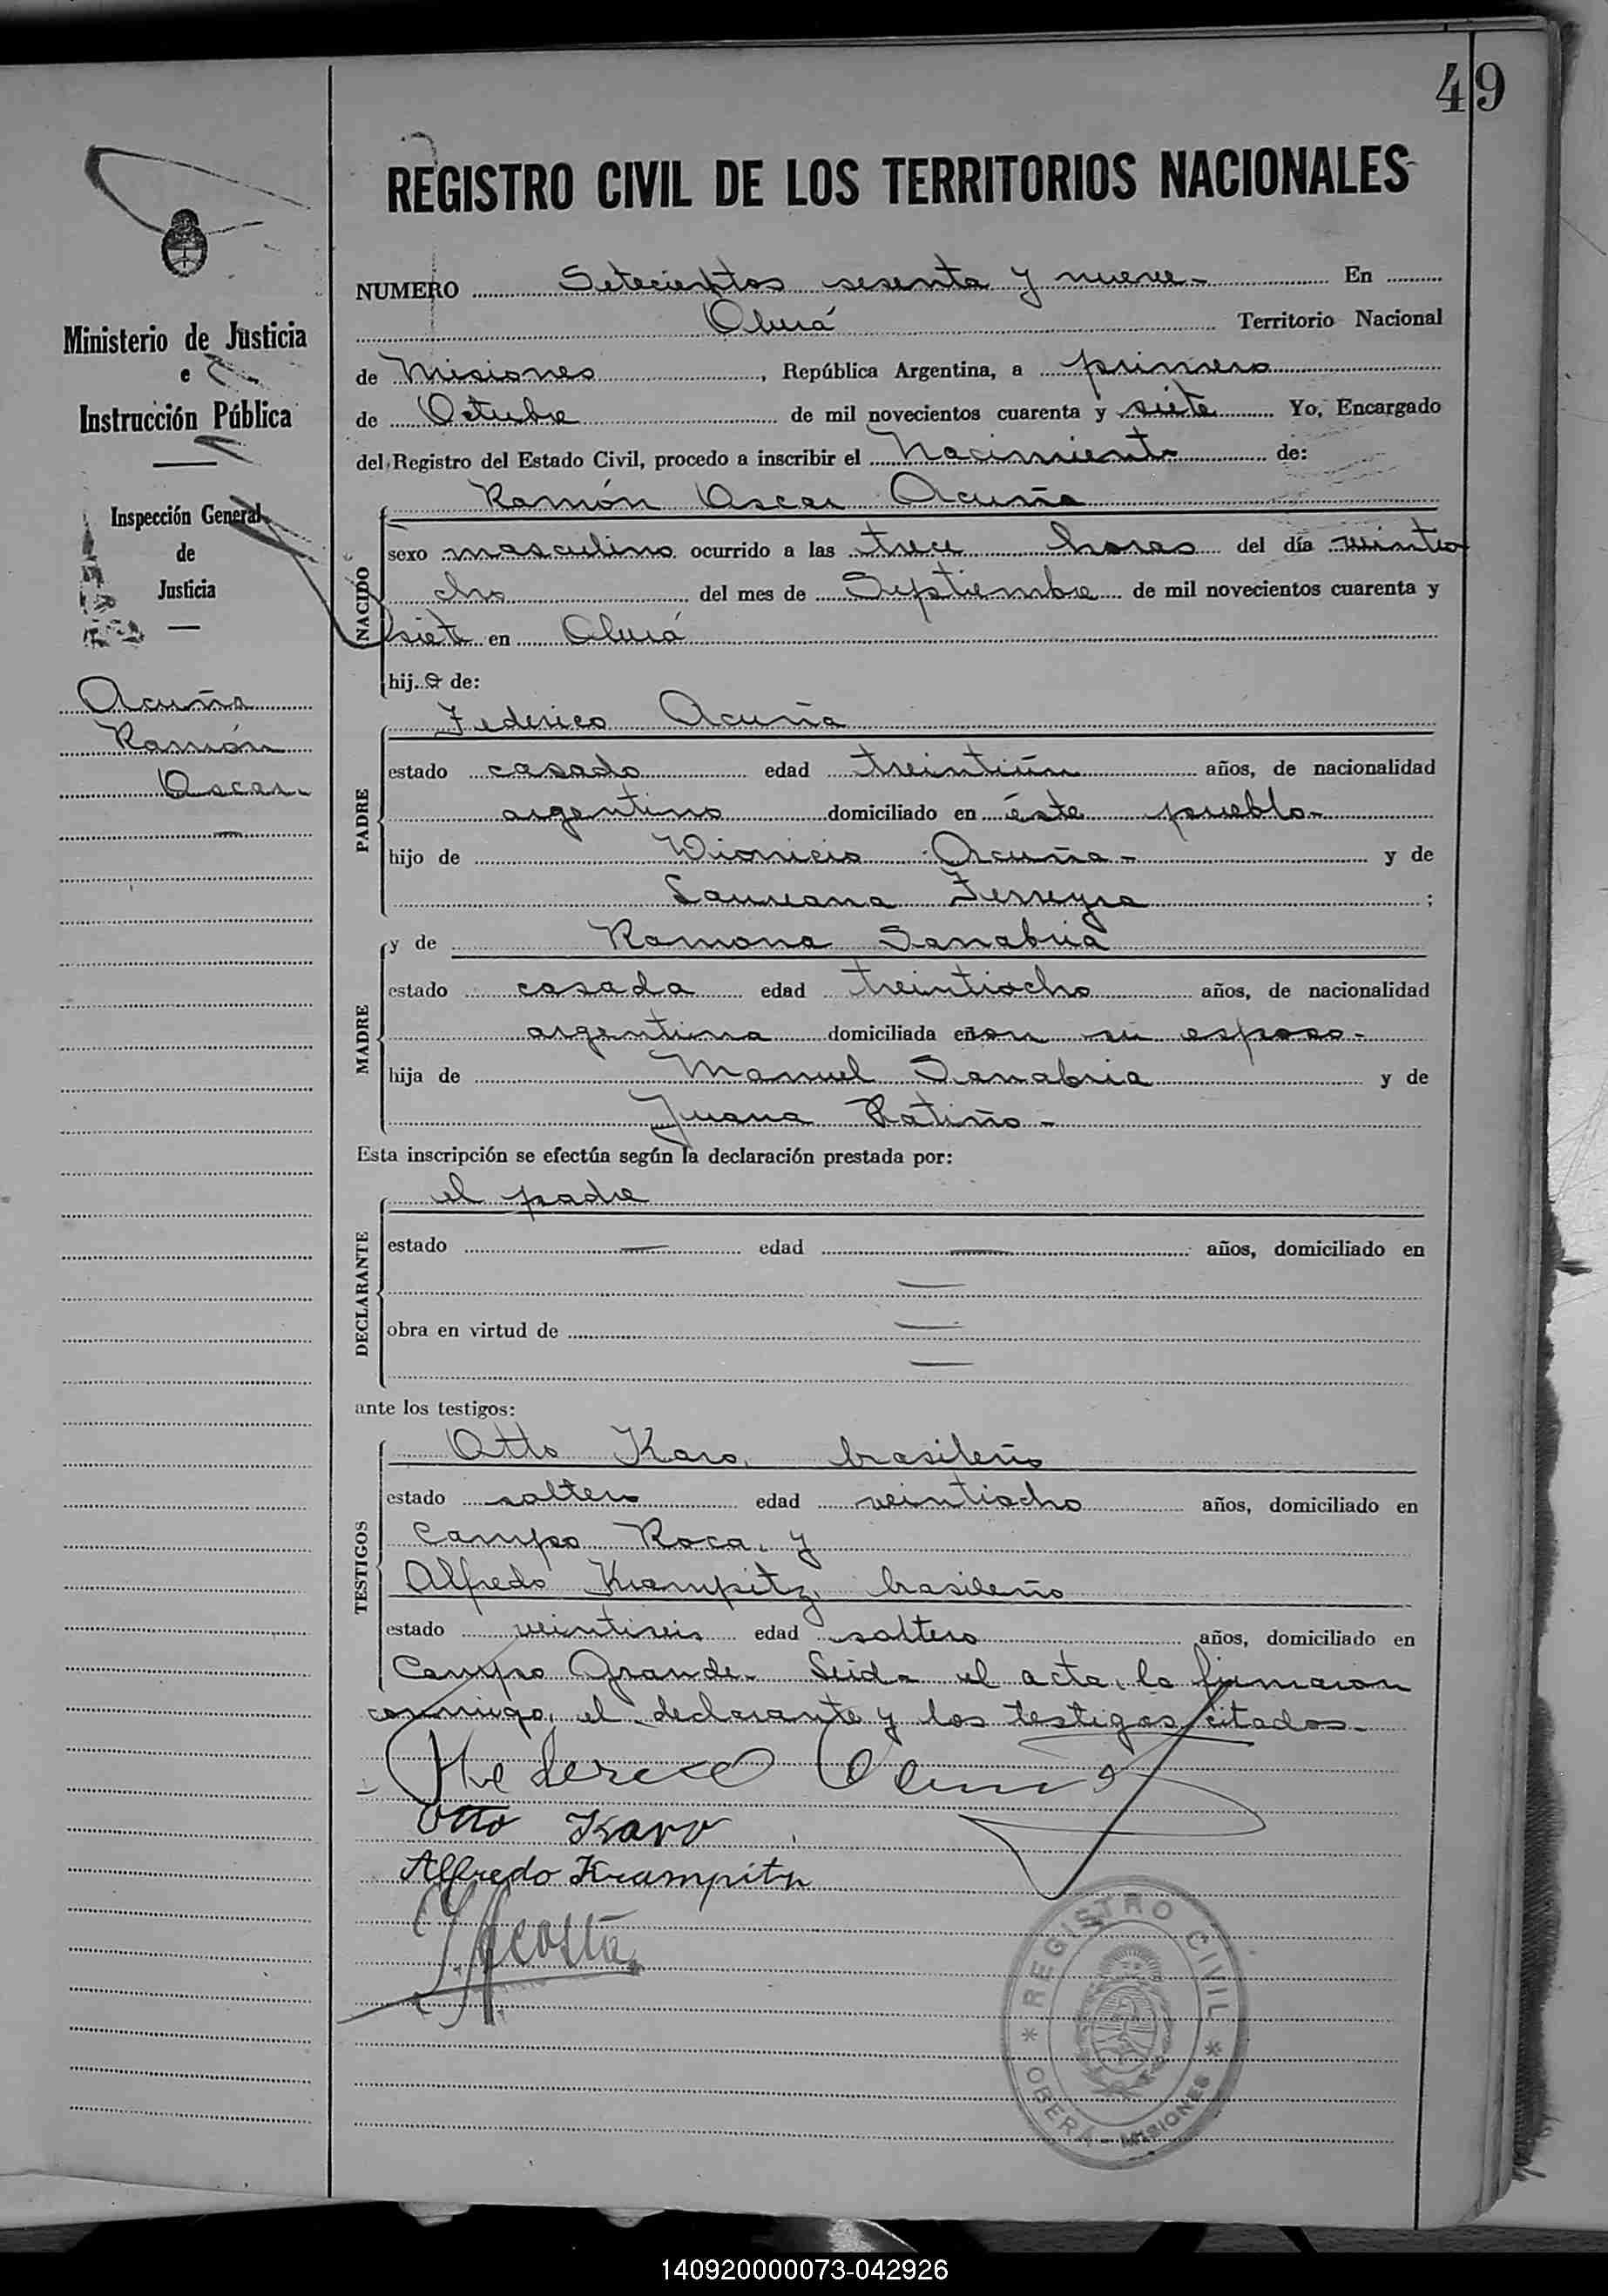 49
REGISTRO CIVIL DE LOS TERRITORIOS NACIONALES
Ministerio de Justicia
e
Instrucción Pública
Inspección General
de
Justicia
Acuña
Ramón
Oscar.
NUMERO Setecientos sesenta y nueve- En
Oberá Territorio Nacional
de Misiones, República Argentina, a primero
de Octubre de mil novecientos cuarenta y siete Yo, Encargado
del Registro del Estado Civil, procedo a inscribir el Nacimiento de:
Ramón Oscar Acuña
NACIDO
sexo masculino ocurrido a las trece horas del día veintio
cho del mes de Septiembre de mil novecientos cuarenta y
siete en Oberá
hij.o de:
PADRE
Federico Acuña
estado casado edad treintiún años, de nacionalidad
argentino domiciliado en éste pueblo-
hijo de Dionicio Acuña- y de
Laureana Ferreyra ;
MADRE
y de Ramona Sanabria
estado casada edad treintiocho años, de nacionalidad
argentina domiciliada con su esposo-
hija de Manuel Sanabria y de
Juana Ratiño-
Esta inscripción se efectúa según la declaración prestada por:
DECLARANTE
el padre
estado — edad — años, domiciliado en
—
obra en virtud de —
—
ante los testigos:
TESTIGOS
Otto Karo, brasileño
estado soltero edad veintiocho años, domiciliado en
Campo Roca, y
Alfredo Krampitz, brasileño
estado veintiseis edad soltero años, domiciliado en
Campo Grande- Leida el acta, la firmaron
conmigo, el declarante y los testigos citados-
Federico Acuña
Otto Karo
Alfredo Krampitz
Acosta
REGISTRO CIVIL
OBERA - MISIONES
140920000073-042926